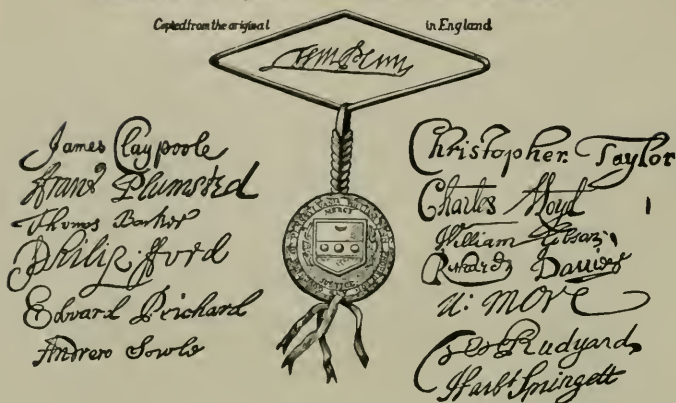 Copied from the original in England
Wm Penn
MERCY
JUSTICE
James Claypoole
Frans Plumsted
Thomas Barker
Philip fford
Edward Prichard
Andrew Sowle
Christopher Taylor
Charles Lloyd
William Gibson
Richard Davies
N: more
Tho Rudyard
Harbt Springett